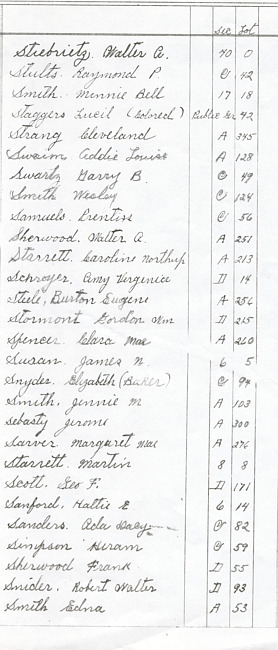 Sec Lot
Stiebrietz, Walter A. 40 0
Stults, Raymond P. C 42
Smith. Minnie Bell 17 18
Staggers Lucil (Colored) Public Gr. 42
Strang Cleveland A 345
Swaim Addie Louise A 128
Swartz Garry B. C 49
Smith Wesley C 124
Samuels. Prentiss C 56
Sherwood, Walter A. A 251
Starrett. Caroline Northup A 213
Schroyer, Amy Virginia D 14
Steele, Burton Eugene A 256
Stormont Gordon Wm D 215
Spencer. Clara Mae A 260
Susan. James N. 6 5
Snyder. Elizabeth (Baker) C 94
Smith, Jennie M A 103
Sebasty Jerome A 300
Sarver, Margaret Mae A 276
Starrett. Martin 8 8
Scott, Geo F. D 171
Sanford, Hattie E 6 14
Sanders. Ada Dacy C 82
Simpson Hiram C 59
Sherwood Frank D 55
Snider, Robert Walter D 93
Smith Edna A 53